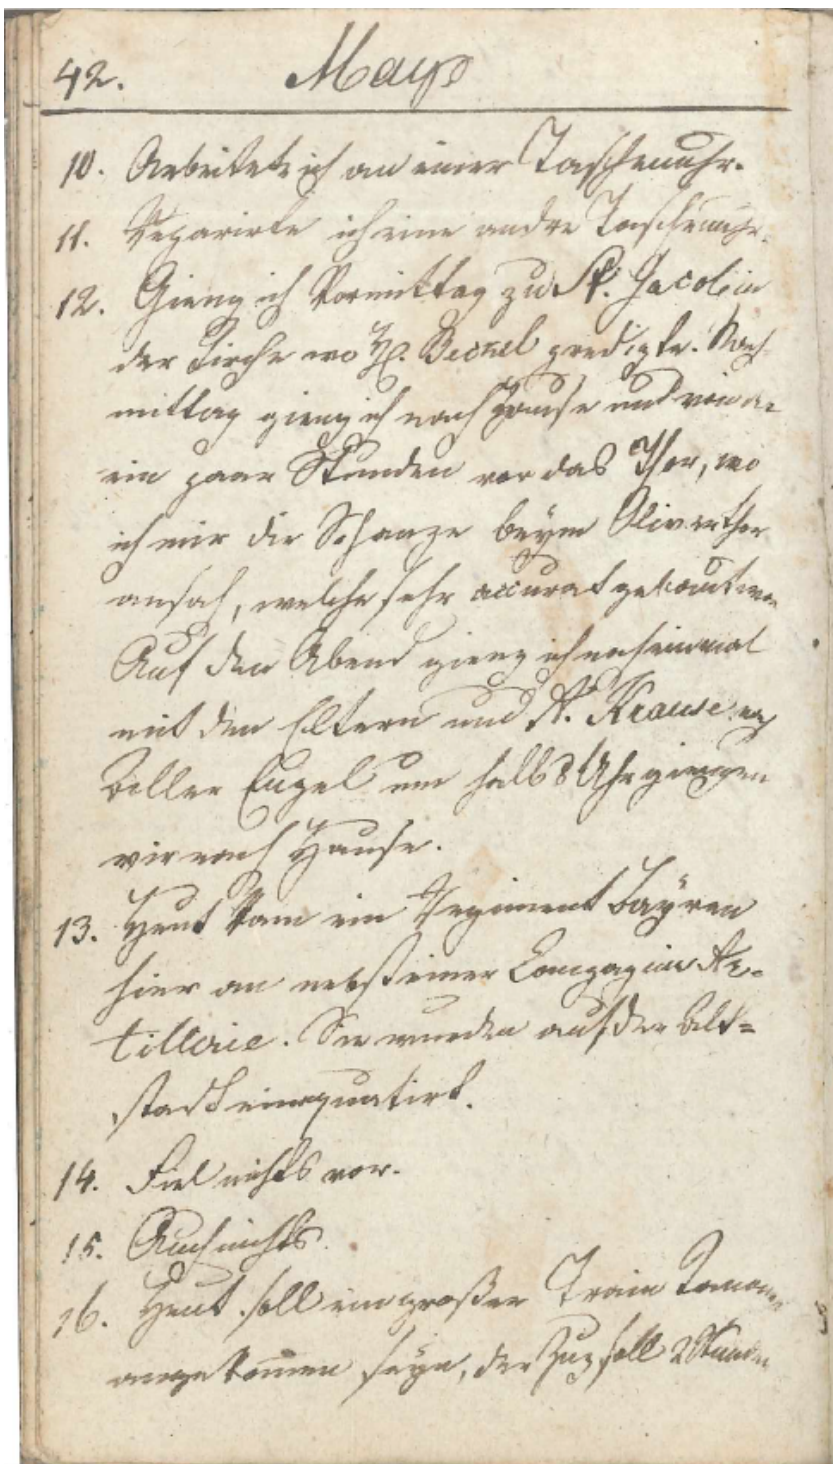 42. May
10. Arbeitete ich an einer Taschenuhr.
11. Reparirte ich eine andre Taschenuhr.
12. Gieng ich Vormittag zu St. Jacob in
der Kirche wo H. Beckel predigte. Nach-
mittag gieng ich nach Hause und
ein paar Stunden vor das Thor, wo
ich mir die Schanze beym Olivaerthor
ansah, welche sehr accurat gebaut war
Auf den Abend gieng ich noch einmal
mit den Eltern und A. Krause nach
Engel um halb 8 Uhr giengen
wir nach Hause.
13. Heut kam ein Regiment Bayren
hier an nebst einer Compagnie Ar-
tillerie. Sie wurden auf der Alt=
stadt einquatirt.
14. Fiel nichts vor.
15. Auch nichts.
16. Heut soll ein großer Train Kanonen
angekommen seyn, der Zug soll 2 Stunden